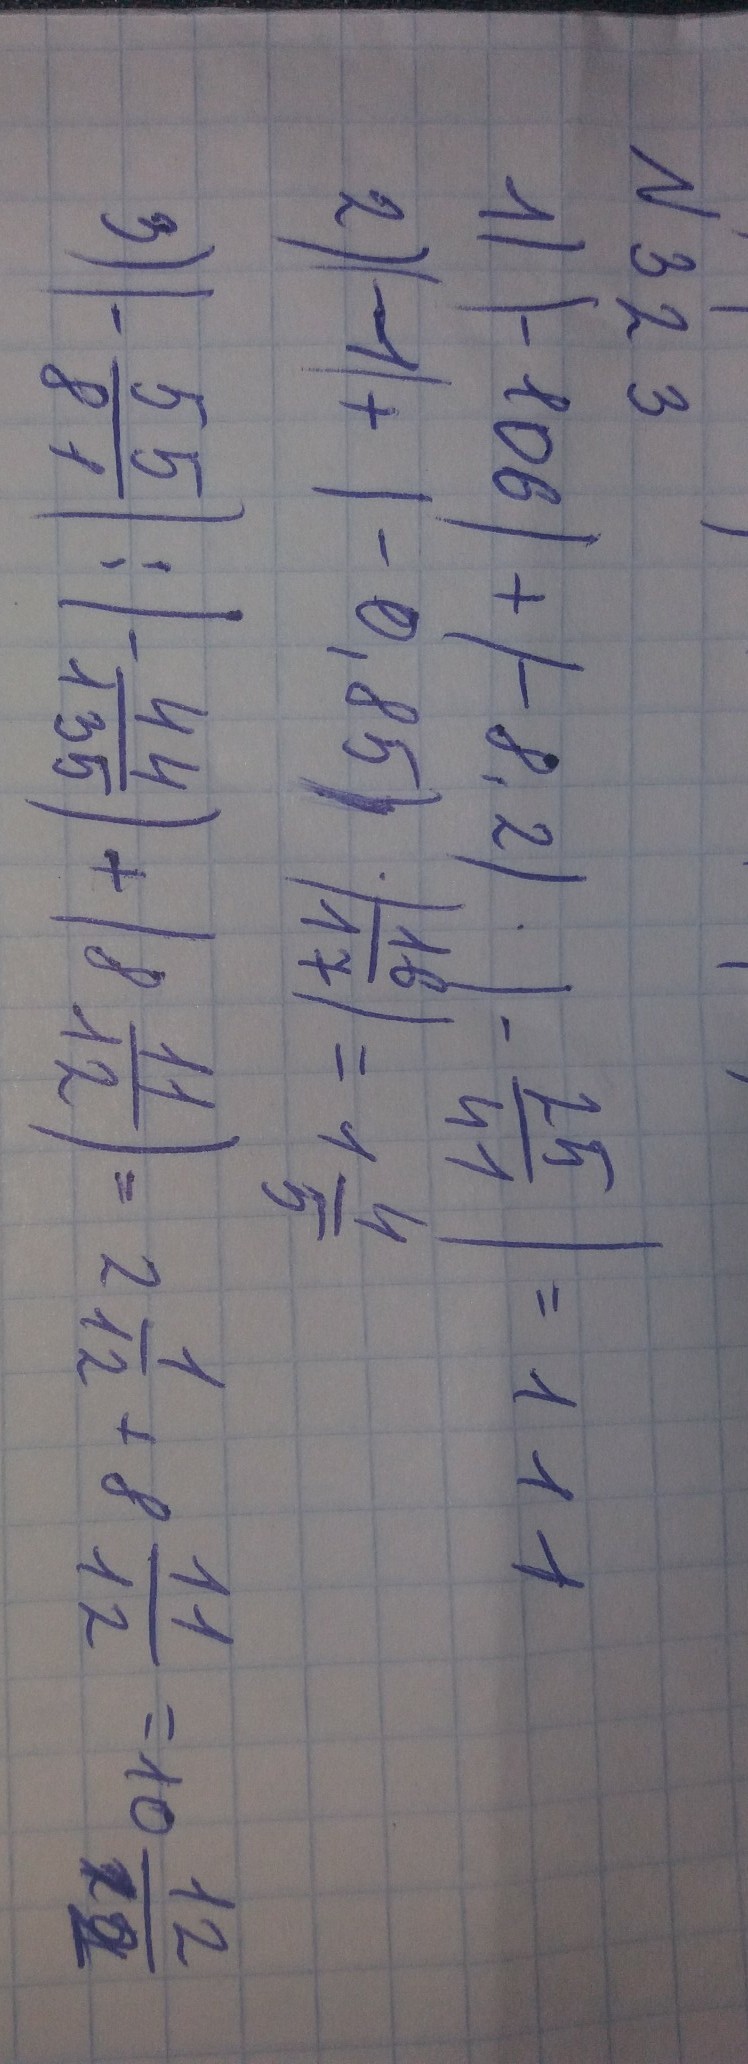 N 323
1) |-106| + |-8,2| · |-25/41| = 111
2) |-1| + |-0,85| · |18/17| = 1 4/5
3) |-55/81| : |-44/135| + |8 11/12| = 2 1/12 + 8 11/12 = 10 12/12